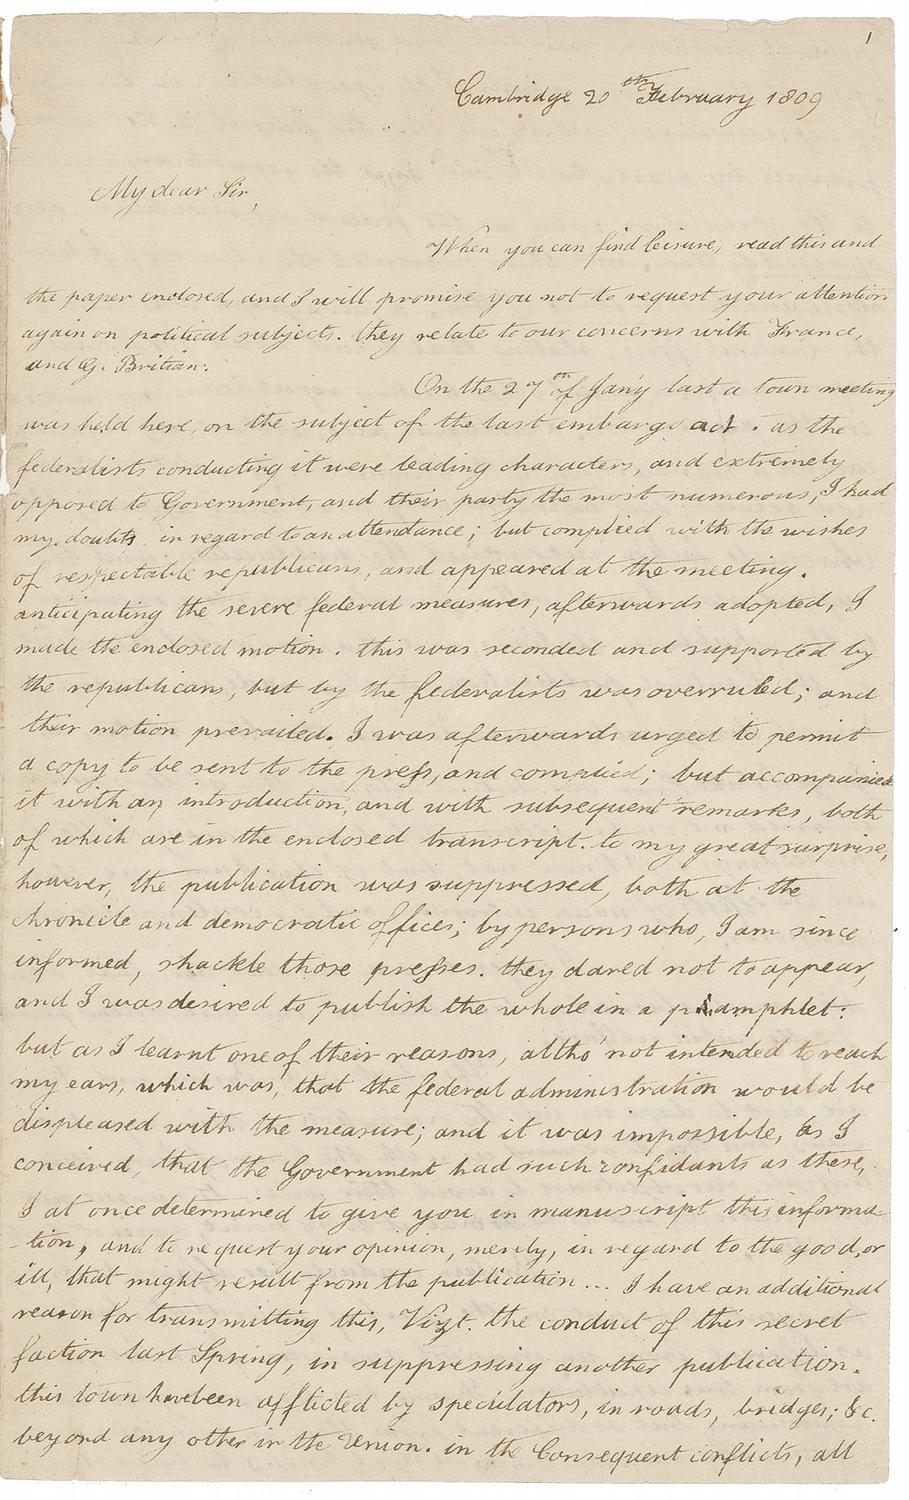 1
Cambridge 20th February 1809
My dear Sir,
When you can find leisure, read this and
the paper inclosed, and I will promise you not to request your attention
again on political subjects. they relate to our concerns with France,
and G. Britian.
On the 27th of Jany last a town meeting
was held here, on the subject of the last embargo act. as the
federalists conducting it were leading characters, and extremely
opposed to Government, and their party the most numerous, I had
my doubts in regard to an attendance; but complied with the wishes
of respectable republicans, and appeared at the meeting.
anticipating the severe federal measures, afterwards adopted, I
made the enclosed motion. this was seconded and supported by
the republicans, but by the federalists was overruled; and
their motion prevailed. I was afterwards urged to permit
a copy to be sent to the press, and complied; but accompanied
it with an introduction, and with subsequent remarks, both
of which are in the enclosed transcript. to my great surprise,
however, the publication was suppressed, both at the
chronicle and democratic offices; by persons who, I am since
informed, shackle those presses. they dared not to appear,
and I was desired to publish the whole in a pamphlet:
but as I learnt one of their reasons, altho' not intended to reach
my ears, which was, that the federal administration would be
displeased with the measure; and it was impossible, as I
conceived, that the Government had such confidants as these,
I at once determined to give you in manuscript this informa-
-tion, and to request your opinion, merely, in regard to the good, or
ill, that might result from the publication... I have an additional
reason for transmitting this, Vizt. the conduct of this secret
faction last Spring, in suppressing another publication.
this town have been afflicted by speculators, in roads, bridges; &c.
beyond any other in the Union. in the Consequent conflicts, all